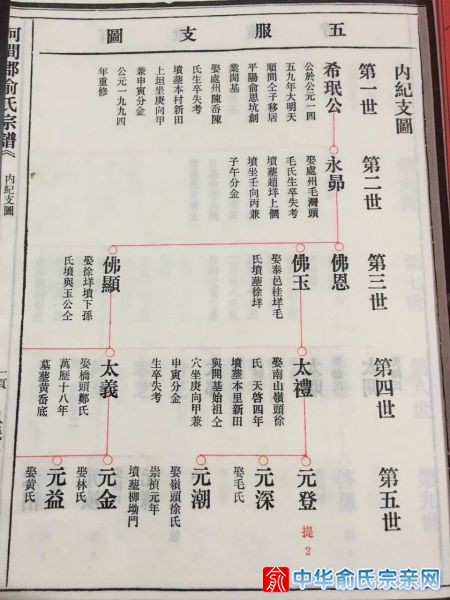 五服支圖
內紀支圖
第一世
希珉公
公於公元一四
五九年大明天
順間仝子移居
平陽俞思坑創
業開基
娶處州陳岙陳
氏生卒失考
墳墓本村新田
上垣坐庚向甲
兼申寅分金
公元一九九四
年重修
第二世
永昴
娶處州毛灣頭
毛氏生卒失考
墳墓趙垟上個
墳坐壬向丙兼
子午分金
第三世
佛恩
佛玉
娶泰邑桂垟毛
氏墳墓徐垟
佛顯
娶徐垟墳下孫
氏墳與玉公仝
第四世
太禮
娶南山嶺頭徐
氏 天啓四年
墳墓本里新田
與開基始祖仝
穴坐庚向甲兼
申寅分金
生卒失考
太義
娶橋頭鄭氏
萬歷十八年
墓墓黃岙底
第五世
元登
提2
元深
娶毛氏
元潮
娶嶺頭徐氏
崇禎元年
墳墓柳坳門
元金
娶林氏
元益
娶黃氏
河間郡俞氏宗譜
內紀支圖
中华俞氏宗亲网